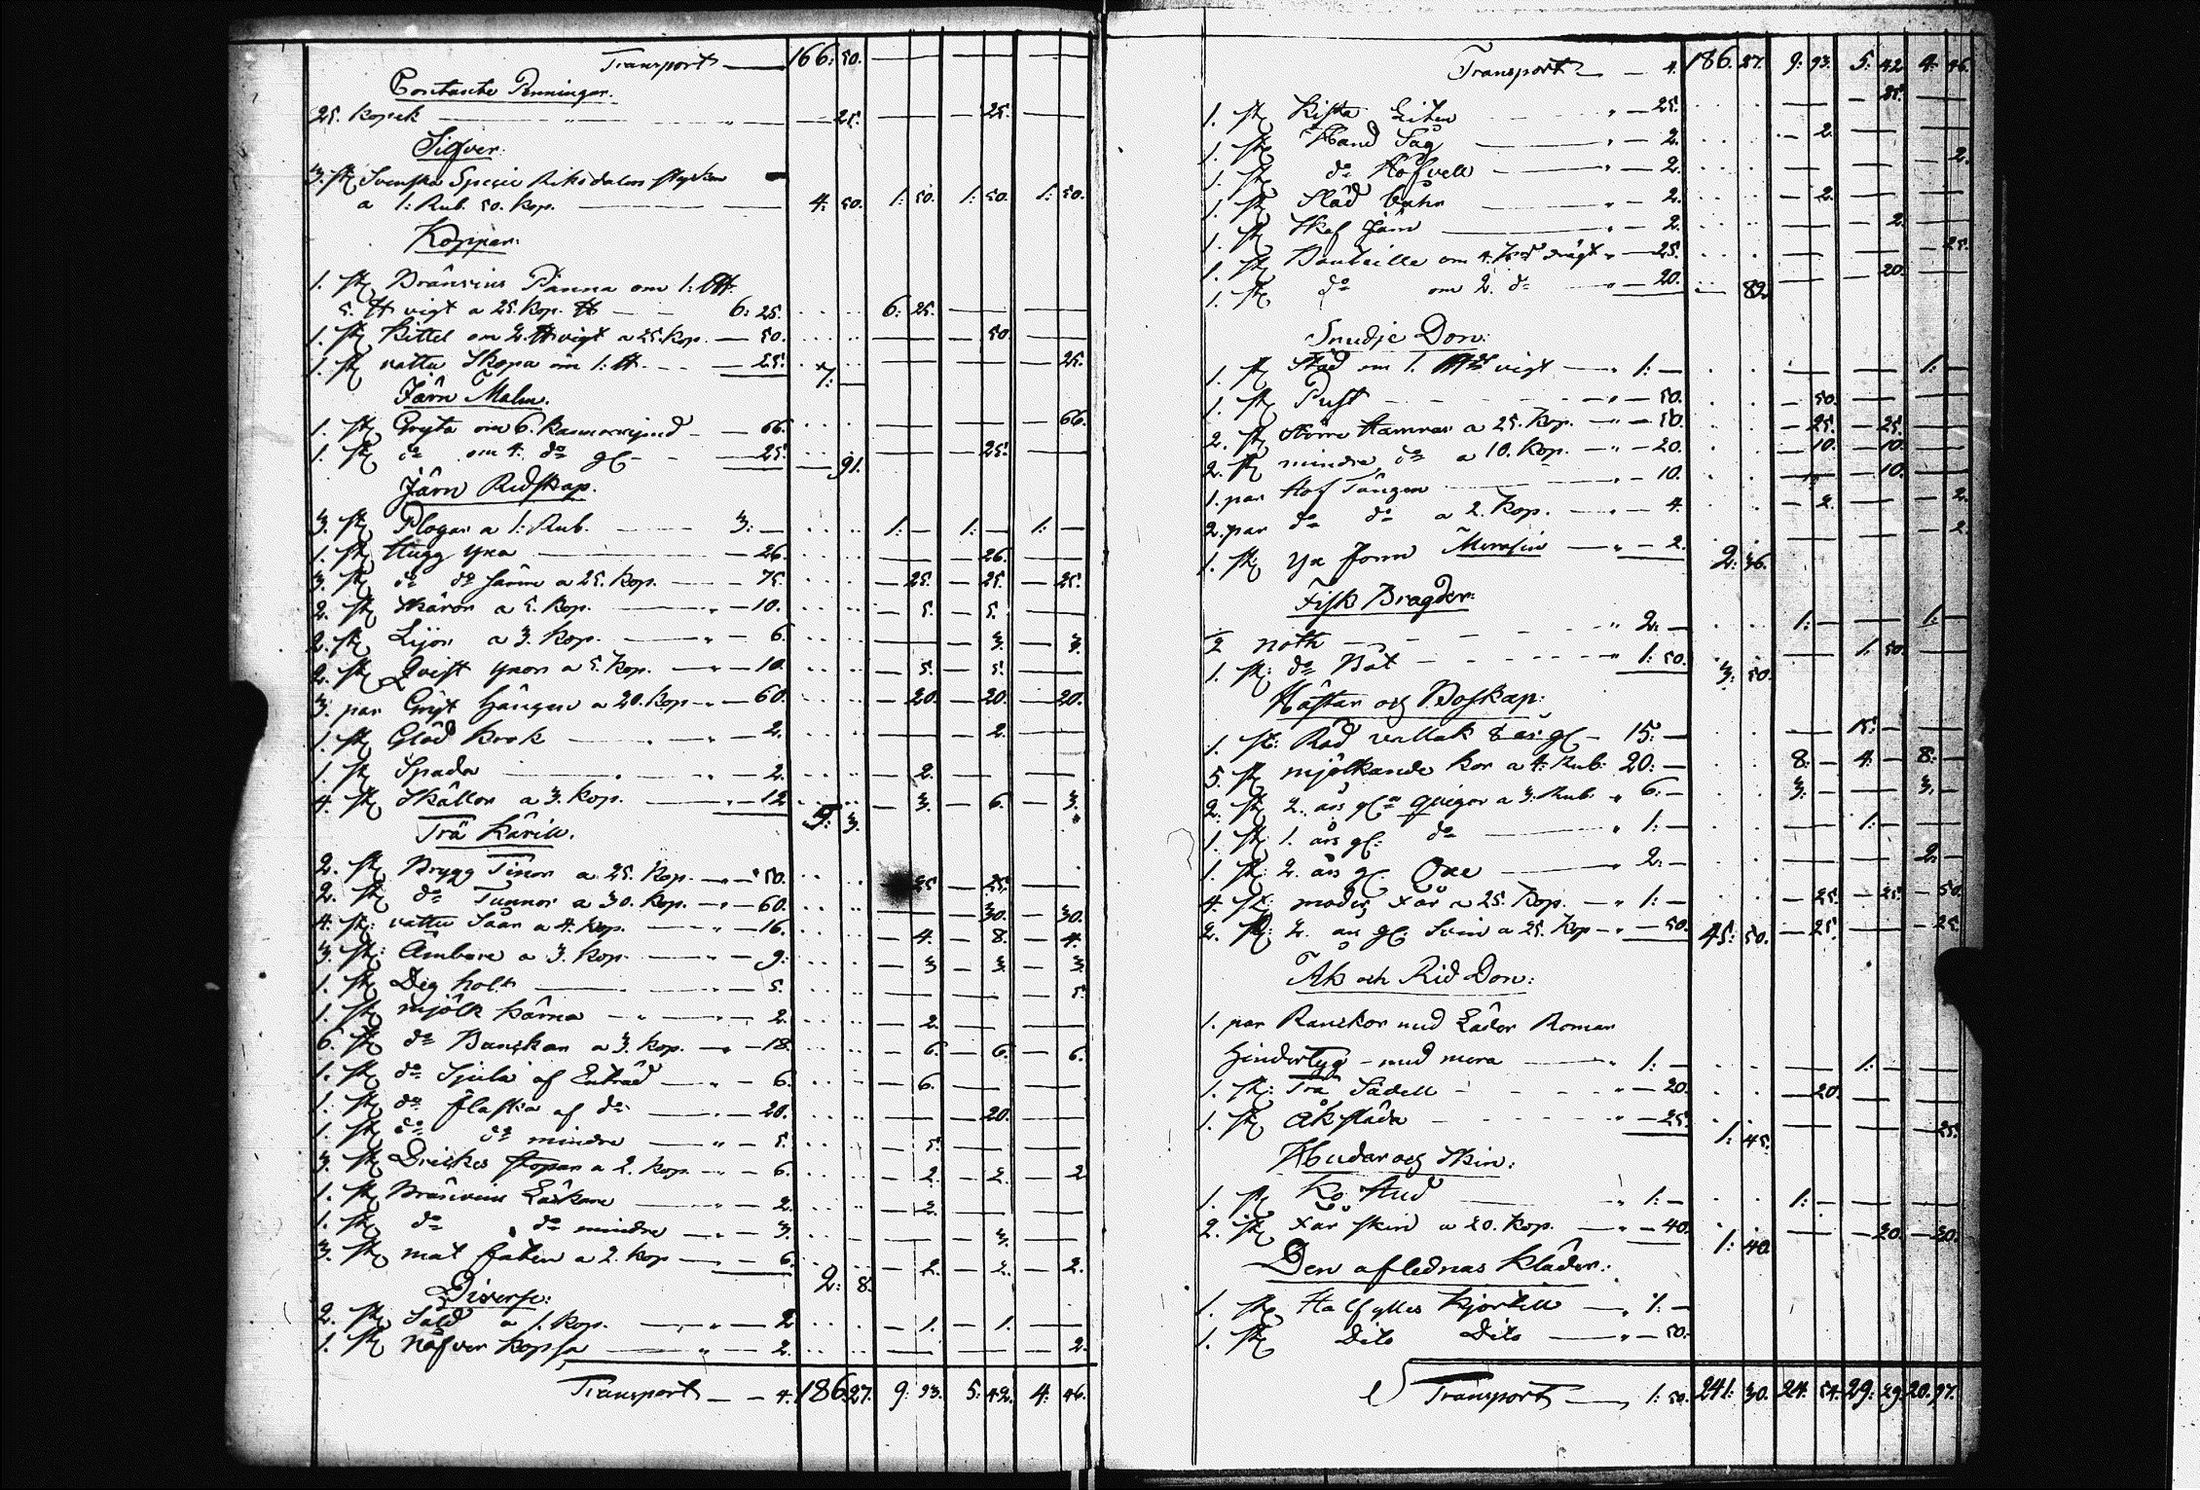 Transport — 166: 50. — — — — — —
Contante Penningar.
25. Kopek — " — " — 25. — — — 25. — —
Silfver.
3. st Svenska Specie Riksdalers stycken
a 1: Rub. 50. Kop. — — 4: 50. 1: 50. 1: 50. 1: 50.
Koppar:
1. st Bränvins Panna om 1: L℔
5. ℔ vigt a 25. Kop. ℔ — — 6: 25. 6: 25. — — — —
1. st Kittel om 2. ℔ vigt a 25. Kop. — 50. — — — 50. — —
1. st vattu Skopa om 1: ℔ — — 25. 7: — — — — — — 25.
Järn Malm.
1. st Gryta om 6. Kannorrymd — — 66. — — — — — 66.
1. st do om 4. do gl — — 25. — 91. — — — 25. — —
Järn Redskap.
3. st Plogar a 1: Rub. — 3: — 1: — 1: — 1: —
1. st Hugg yxa — — 26. — — — 26. — —
3. st do do sämre a 25. Kop. — — 75. — 25. — 25. — 25.
2. st Skäror a 5. Kop. — " — 10. — 5. — 5. — —
2. st Lijor a 3. Kop. — " — 6. — — — 3. — 3.
2. st Qvist yxor a 5. Kop. — " — 10. — 5. — 5. — —
3. par Gryt Hängen a 20. Kop — " — 60. — 20. — 20. — 20.
1. st Glöd Krok — " — " — 2. — — — 2. — —
1. st Spada — " — " — 2. — 2. — — — —
4. st Skällor a 3. Kop. — " — 12. 5: 3. — 3. — 6. — 3.
Trä Kärill.
2. st Brygg Tinor a 25. Kop. — " — 50. 25 — 25. — —
2. st do Tunnor a 30. Kop. — " — 60. — — — 30. — 30.
4. st: vattu Såar a 4. Kop. — " — 16. — 4. — 8. — 4.
3. st: Ämbare a 3. Kop. — " — 9: — 3 — 3. — 3.
1. st Deg holk — " — 5. — — — — — 5.
1. st mjölk Kärna — " — " — 2. — 2. — — — —
6. st do Bunckar a 3. Kop. — " — 18. — 6. — 6. — 6.
1. st do af Enträd — " — 6. — 6. — — — —
1. st do flaska af do — " — 20. — — — 20. — —
1. st do do mindre — " — 5. — 5. — — — —
3. st Drickes stopar a 2. Kop. — " — 6. — 2. — 2. — 2
1. st Bränvins Läckare — " — 2. — 2. — — — —
1. st do do mindre — " — 3. — — — 3. — —
3. st mat faten a 2. Kop — " — 6. 2: 8. — 2. — 2. — 2.
Diverse:
2. st Såld a 1. Kop. — " — 2 — 1. — 1. — —
1. st Näfver Kopsa — " — 2. — — — — — 2.
Transport — — 4. 186. 27. 9: 93. 5: 42. 4: 46.
Transport — — 4. 186. 27. 9: 93. 5: 42 4: 46.
1. st Kista Liten — " — 25. — — — 25. — —
1. st Hand Såg — " — 2. — 2. — — — —
1. st do Höfvell — " — 2. — — — — — 2.
1. st — " — 2. — 2. — — — —
1. st Skaf Järn — " — 2. — — — 2. — —
1. st Bouteille om 4. drägt " — 25. — — — — — 25.
1. st do om 2. do — " — 20. — 82. — — — 20. — —
Smidje Don:
1. st Städ om 1. vigt — " 1: — — — — — 1: —
1. st Pust — " — 50. — 50. — — — —
2. st större Hamrar a 25. Kop. — " — 50. — 25. — 25. — —
2. st mindre do a 10. Kop. — " — 20. — 10. — 10. — —
1. par Hof Tänger — " — 10. — — — 10. — —
2. par do do a 2. Kop. — " — 4. — 2. — — — 2.
1. st yx Form — " — 2. 2: 36. — — — — — 2.
Fisk Bragder:
1/2 noth — " 2: — 1: — — — 1: —
1. st: do Båt — " 1: 50. 3: 50. — — 1: 50. — —
Hästar och Boskap:
1. st: Röd vallak 8 års gl — 15: — — — 15: — — —
5. st mjölkande Kor a 4: Rub: 20: — 8: — 4: — 8: —
2. st 2. års gla Qvigor a 3: Rub. " 6: — 3: — — — 3: —
1. st: 1. års gl: do — " 1: — — — 1: — — —
1. st: 2. års gl. Oxe — " 2: — — — — — 2: —
4. st: moder Får a 25. Kop. — " 1: — — 25. — 25. — 50.
2. st: 2. års gl: Svin a 25. Kop — " — 50. 45: 50. — 25. — — — 25.
Åk och Rid Don:
1. par Ranckor med Läder Remar
Hindertyg — med mera — " 1: — — — 1: — — —
1. st: Trä Sadell — " — 20. — 20. — — — —
1. st Åksläda — " — 25. 1: 45. — — — — — 25.
Hudar och Skin:
1. st Ko Hud — " 1: — 1: — — — — —
2. st Får skin a 20. Kop. — " — 40. 1: 40. — — — 20. — 20.
Den aflednas Kläder:
1. st Halfylles Kjortell — " 1: —
1. st Dito Dito — " — 50.
Transport — 1: 50. 241: 30. 24: 54. 29: 29. 20: 97.